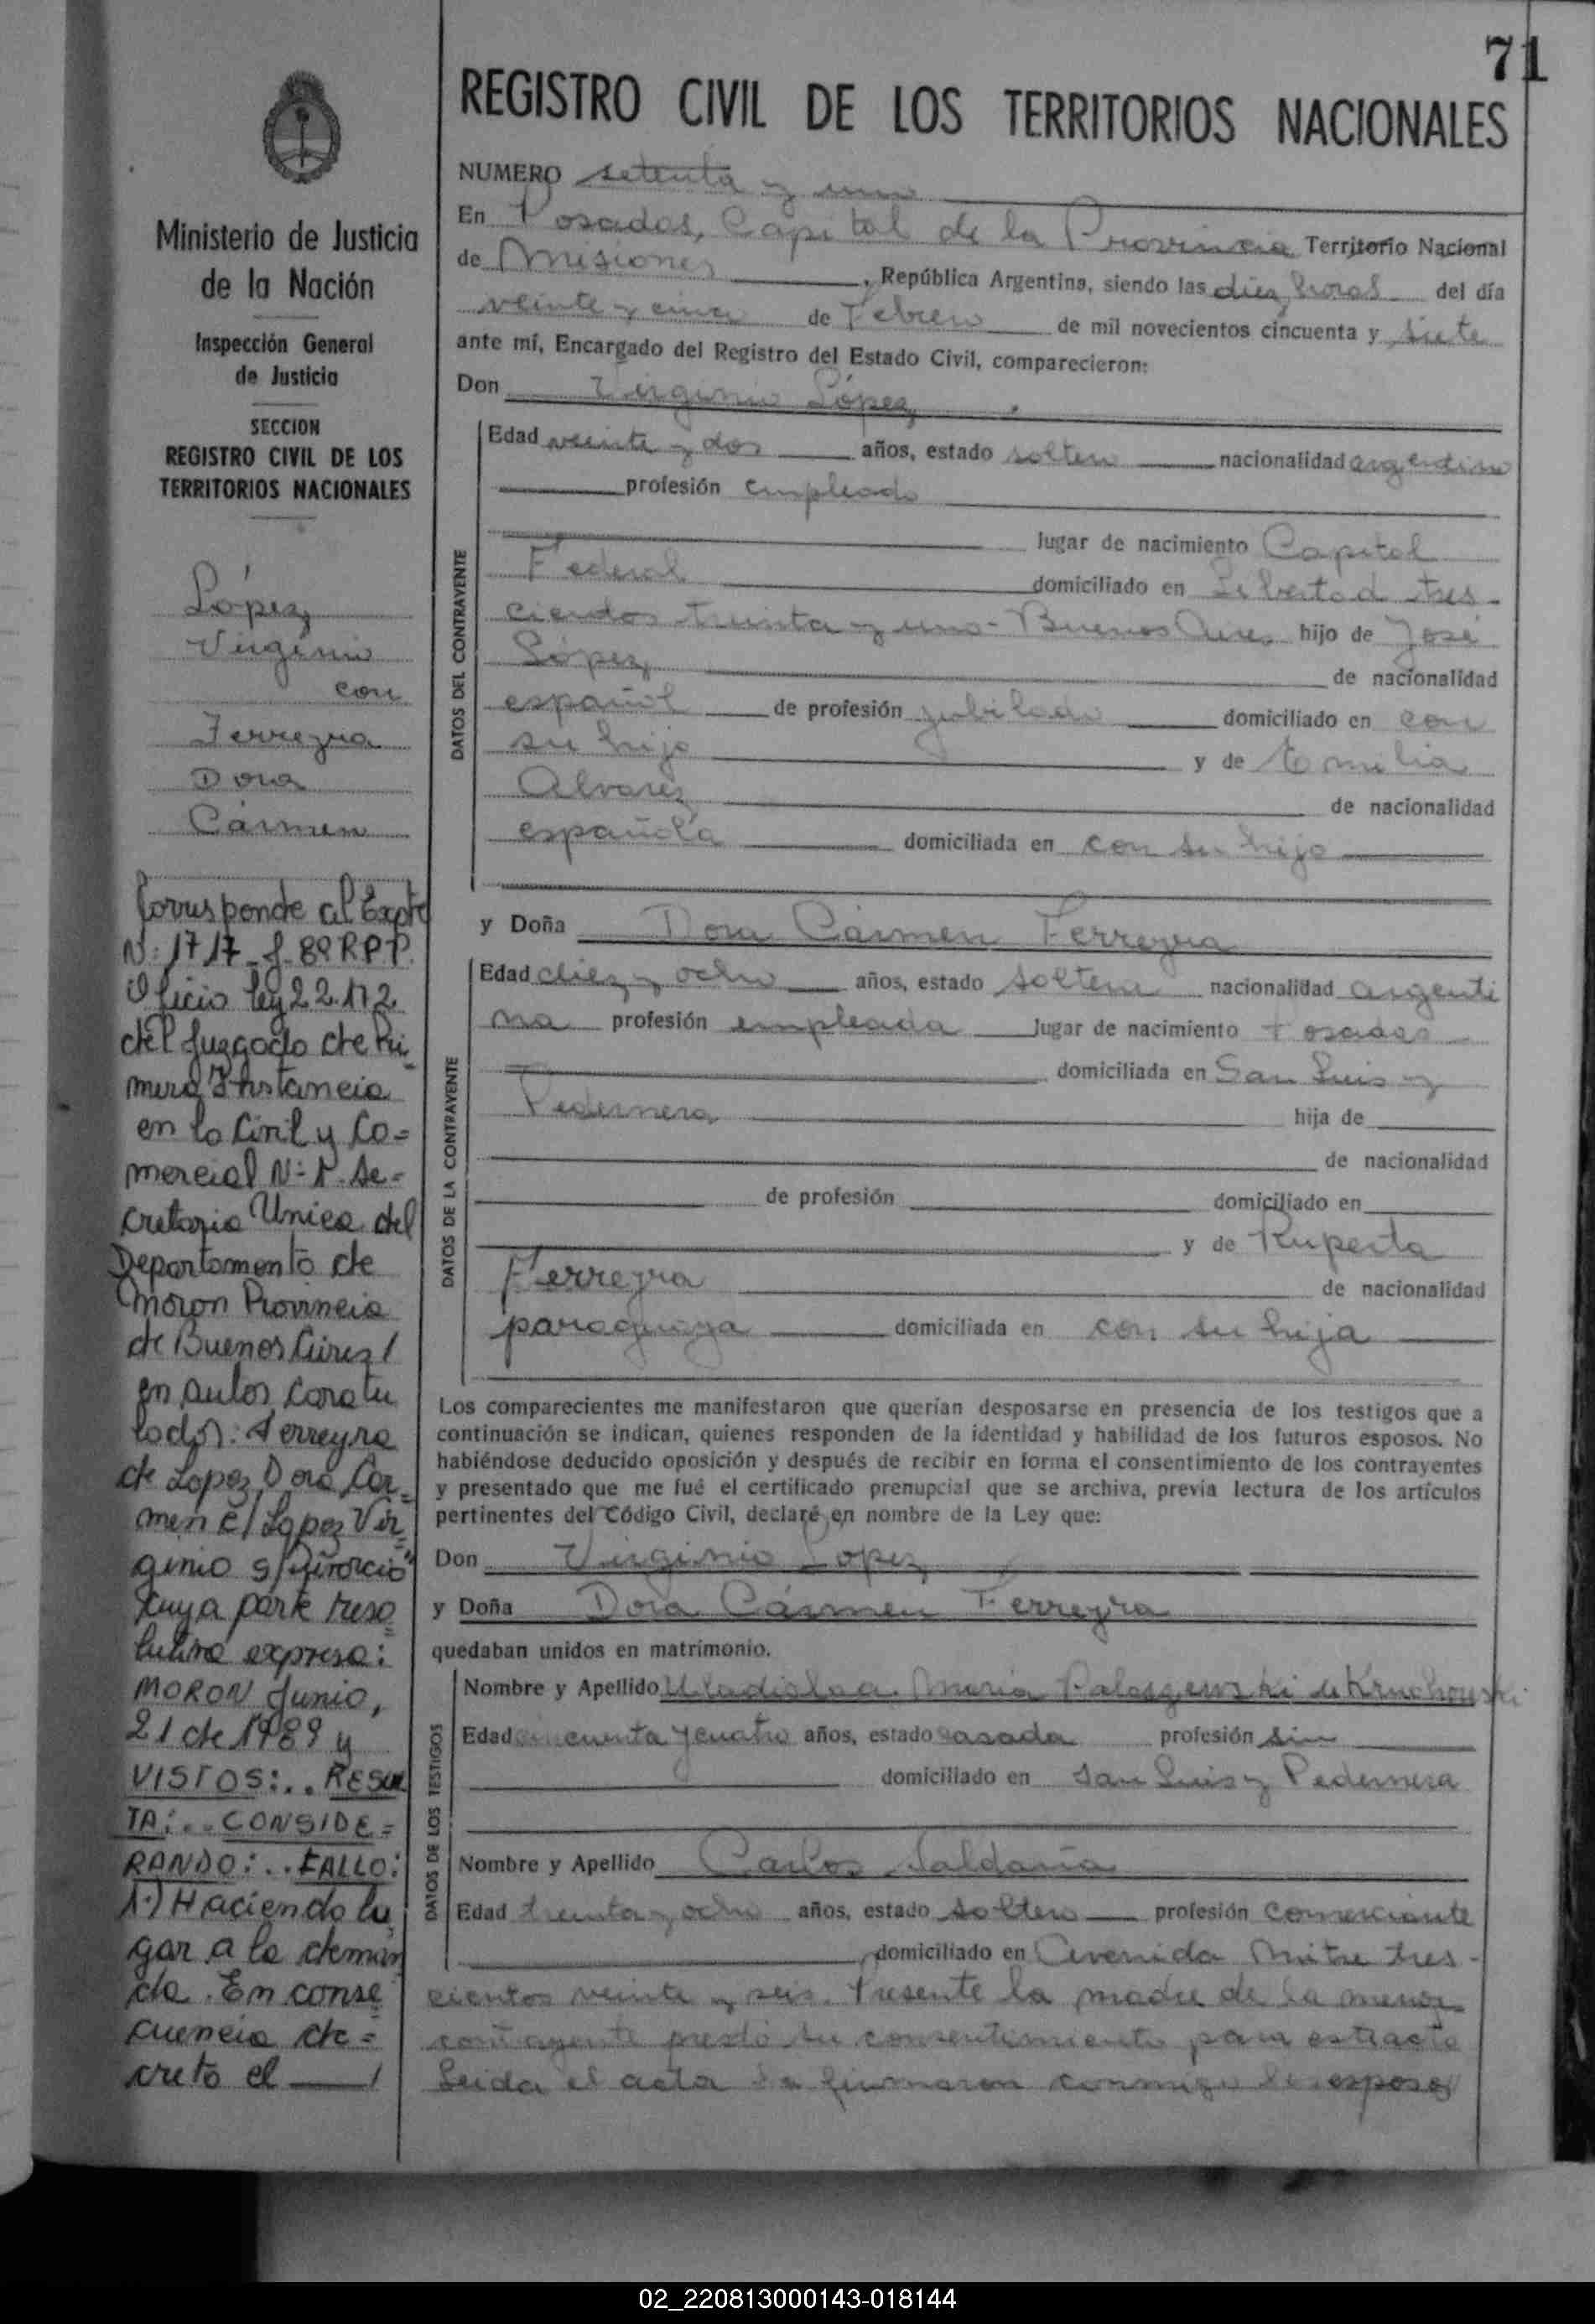 71
REGISTRO CIVIL DE LOS TERRITORIOS NACIONALES
Ministerio de Justicia
de la Nación
Inspección General
de Justicia
SECCION
REGISTRO CIVIL DE LOS
TERRITORIOS NACIONALES
López
Virginio
con
Ferreyra
Dora
Cármen
Corresponde al Expte
Nº: 1717_f_89 R.P.P.
Oficio ley 22.172
del Juzgado de Pri-
mera Instancia
en lo Civil y Co=
mercial Nº 1. Se=
cretaria Unica del
Departamento de
Moron Provincia
de Buenos Aires/
en autos caratu
lados: Ferreyra
de Lopez Dora Car=
men c/ Lopez Vir=
ginio s/Divorcio"
cuya parte reso=
lutiva expresa:
MORON Junio,
21 de 1989 y
VISTOS:.. RESUL
TA:.. CONSIDE=
RANDO:.. FALLO:
1.) Haciendo lu
gar a la deman
da. En conse
cuencia de=
creto el ___/
NUMERO setenta y uno
En Posadas, Capital de la Provincia Territorio Nacional
de Misiones, República Argentina, siendo las diez horas del día
veinte y cinco de Febrero de mil novecientos cincuenta y siete
ante mí, Encargado del Registro del Estado Civil, comparecieron:
Don Virginio López
DATOS DEL CONTRAYENTE
Edad veinte y dos años, estado soltero nacionalidad argentino
profesión empleado
lugar de nacimiento Capital
Federal domiciliado en Libertad tres-
cientos treinta y uno - Buenos Aires hijo de José
López de nacionalidad
español de profesión jubilado domiciliado en con
su hijo y de Emilia
Alvarez de nacionalidad
española domiciliada en con su hijo
y Doña Dora Cármen Ferreyra
DATOS DE LA CONTRAYENTE
Edad diez y ocho años, estado soltera nacionalidad argenti
na profesión empleada lugar de nacimiento Posadas
domiciliada en San Luis y
Pedernera hija de
de nacionalidad
de profesión domiciliado en
y de Ruperta
Ferreyra de nacionalidad
paraguaya domiciliada en con su hija
Los comparecientes me manifestaron que querían desposarse en presencia de los testigos que a
continuación se indican, quienes responden de la identidad y habilidad de los futuros esposos. No
habiéndose deducido oposición y después de recibir en forma el consentimiento de los contrayentes
y presentado que me fué el certificado prenupcial que se archiva, previa lectura de los artículos
pertinentes del Código Civil, declaré en nombre de la Ley que:
Don Virginio Lopez
y Doña Dora Cármen Ferreyra
quedaban unidos en matrimonio.
DATOS DE LOS TESTIGOS
Nombre y Apellido Uladislaa Maria Palaszewski de Kruchowski
Edad cincuenta y cuatro años, estado casada profesión sin
domiciliado en San Luis y Pedernera
Nombre y Apellido Carlos Saldaña
Edad treinta y ocho años, estado soltero profesión comerciante
domiciliado en Avenida Mitre tres-
cientos veinte y seis. Presente la madre de la menor
contrayente prestó su consentimiento para este acto
Leida el acta la firmaron conmigo los esposos
02_220813000143-018144